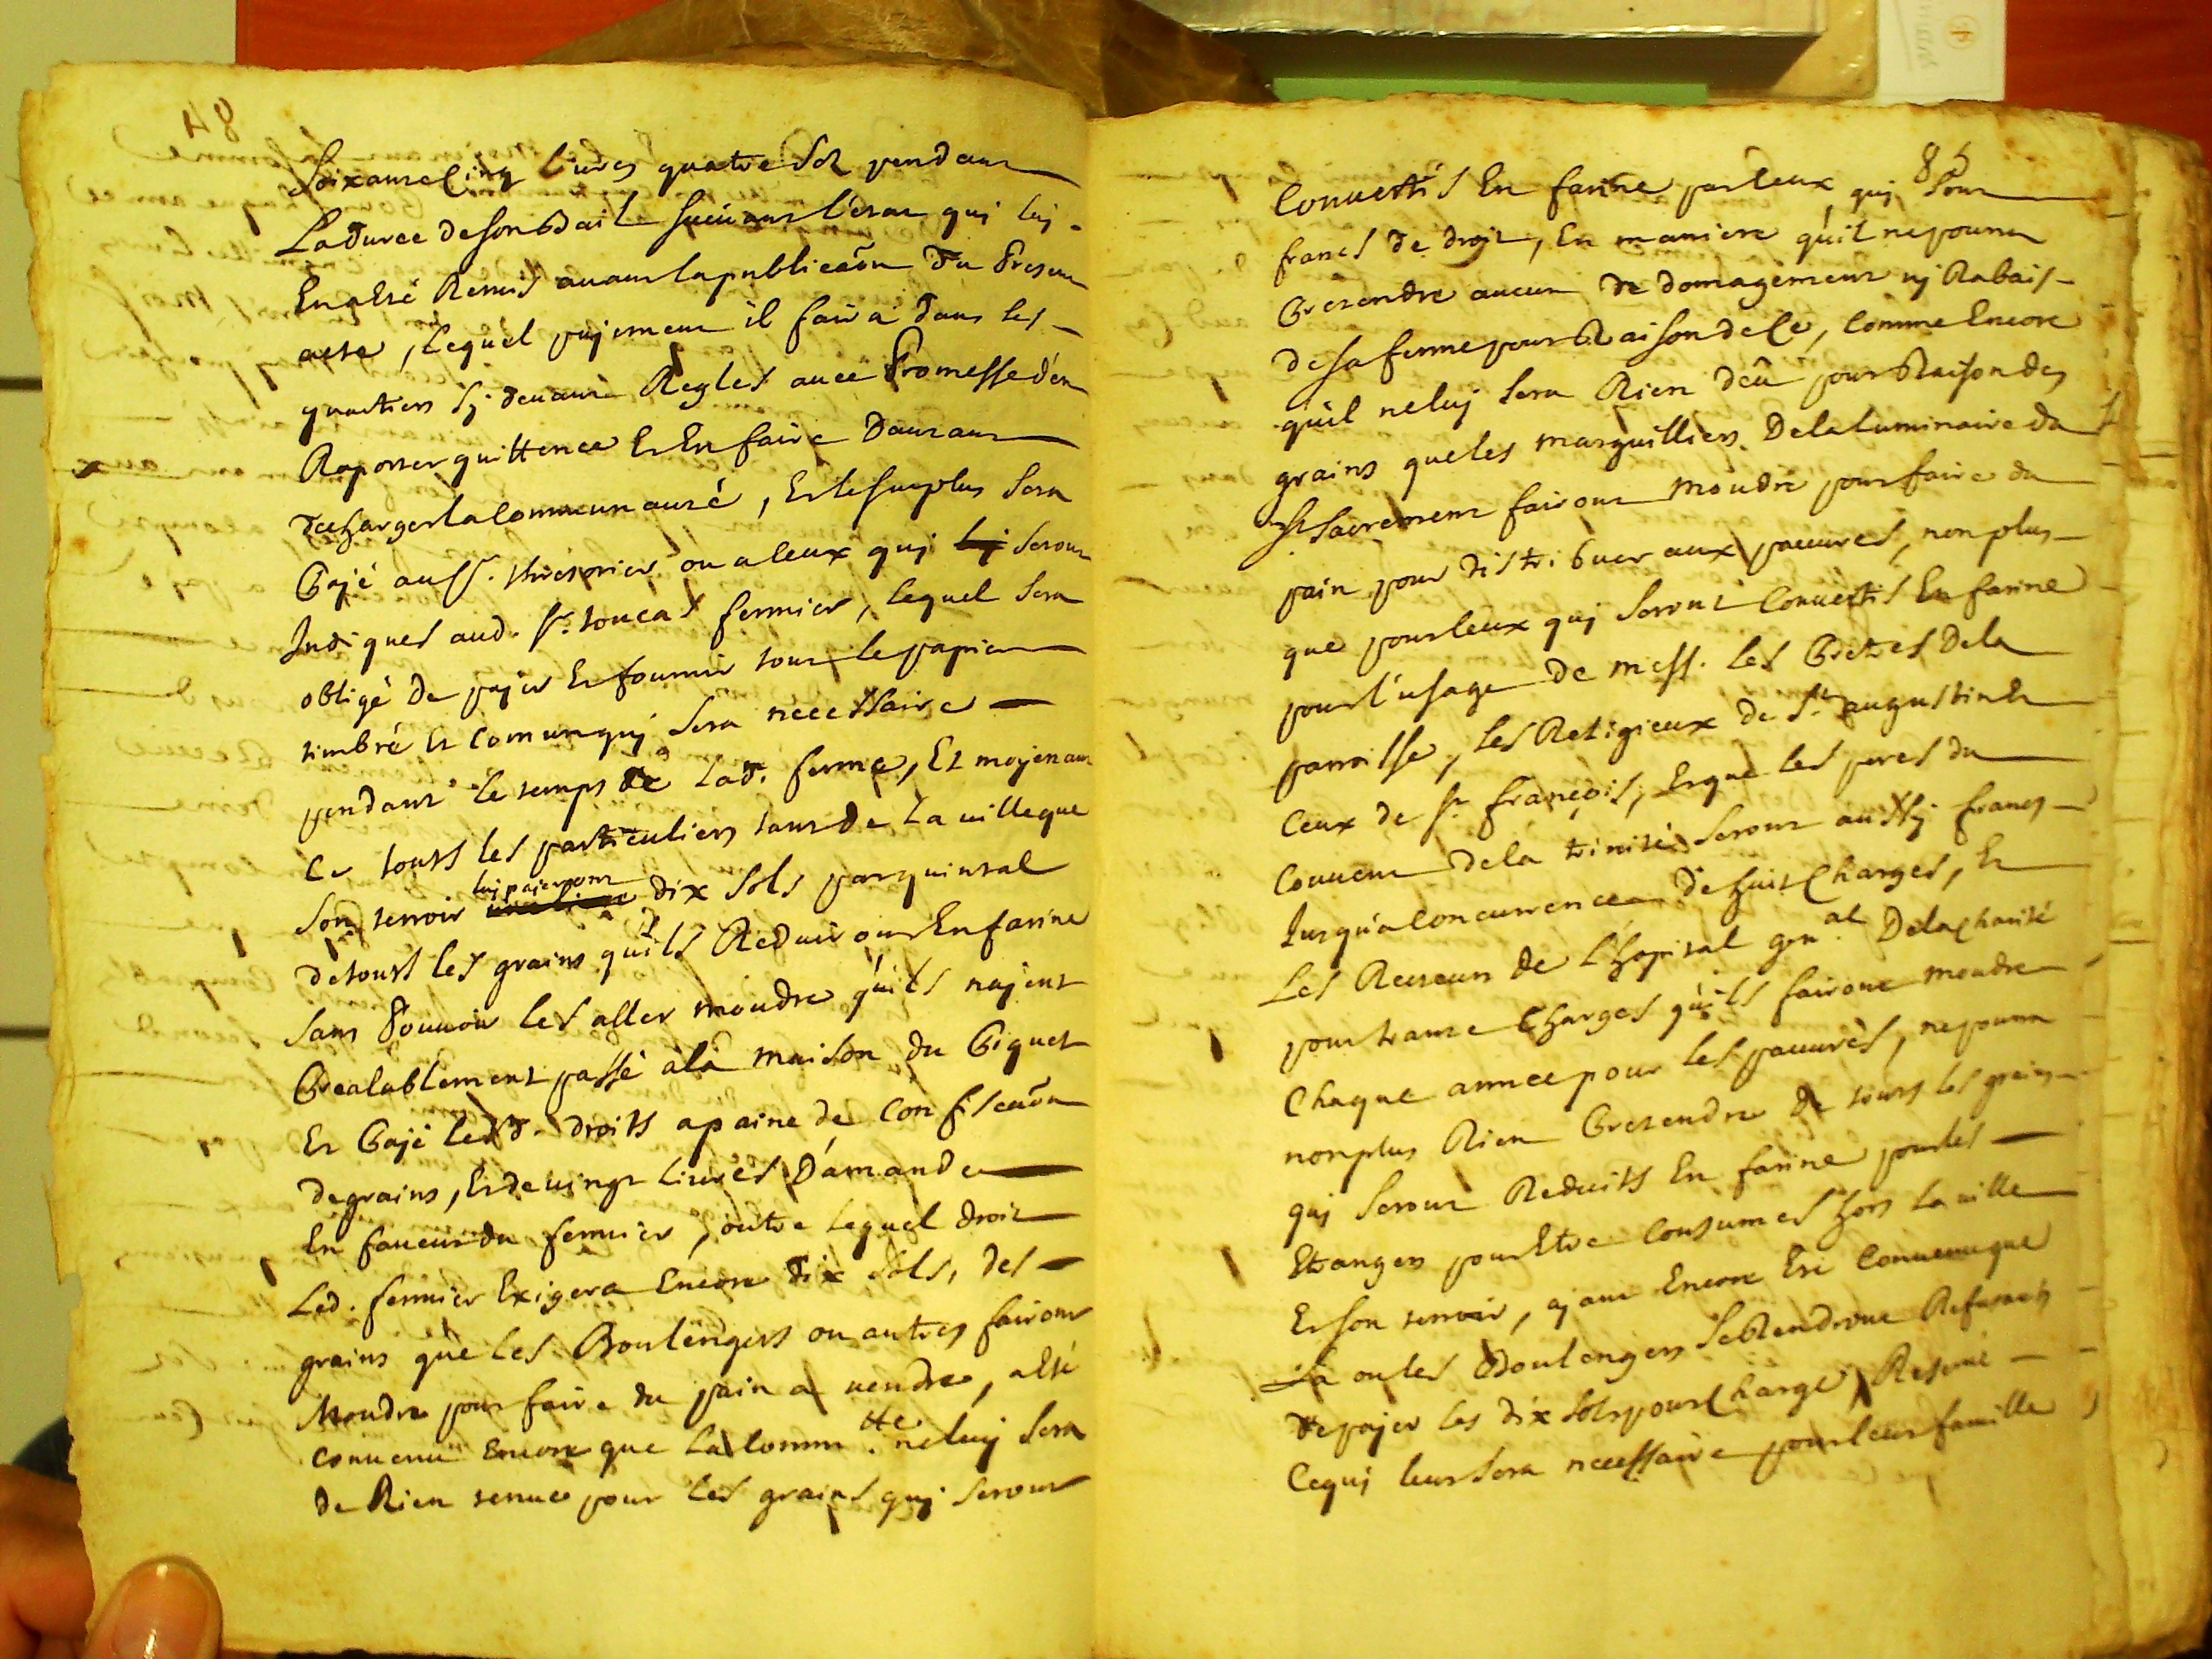 84
Soixante Cinq livres quatre Sol pendant
La durée de son Bail suivant l'etat qui luj
En a esté Remis avant la publica͠on du Present
acte, Lequel payement il faira dans les
quartiers Sj devant Reglés avec Promesse d'en
Raporter quittence Et En faire Dautant
decharger la Communauté, Et le surplus Sera
Payé aud Sr. thresorier ou a Ceux quj Seront
Indiqués aud. Sr. toucas fermier, lequel Sera
obligé de payer Et fournir tout le papier
timbré Et Comun quj Sera necessaire
pendant le temps de Lad. ferme, Et moyenant
Ce touts les particuliers tant de La ville que
Son terroir luj payeront dix Sols par quintal
de touts les grains qu'ils Reduiront En farine
Sans Pouvoir les aller moudre qu'ils n'ajent
Prealablement passé à la maison du Piquet
Et Payé lesd. droits a paine de Confisca͠on
de grains, Et de vingt Livres D'amande
En faveur du fermier, outre Lequel droit
Led. fermier Exigera Encore dix Sols, des
grains que les Boulengers ou autres fairont
Moudre pour faire du pain a vendre, a esté
convenu Encore que La Comm.tte ne luj Sera
de Rien tenue pour les grains quj Seront
85
Convertis En farine par Ceux quj Sont
francs de droit, En maniere qu'il ne pourra
Pretendre aucun de domagement nj Rabais
de Sa ferme pour Raison de Ce, Comme Encore
qu'il ne luj Sera Rien deû pour Raison des
grains que les marguilliers De la Luminaire du
St. Sacrement fairont moudre pour faire du
pain pour distribuer aux pauvres, non plus
que pour Ceux quj Seront Convertis En farine
pour l'usage de mess. les Pretres De la
parroisse, les Religieux de St. augustin Et
Ceux de St. françois, Et que les peres du
Couvent De la trinité Seront aussj francs
Jusqu'a Concurrence de huit Charges, Et
Les Recteurs de l'hopital gen.al De la Charité
pour trante Charges qu'ils fairont moudre
Chaque année pour les pauvres, ne pourra
non plus Rien Pretendre de touts les grains
quj Seront Reduits En farine pour les
Etrangers pour Etre Consumés hors La ville
Et Son terroir, ajant Encore Esté Convenu que
Là ou les Boulengers Se Rendront Refusants
de payer les dix Sols pour Charge, Reservé
Ce quj leur Sera necessaire pour leur famille